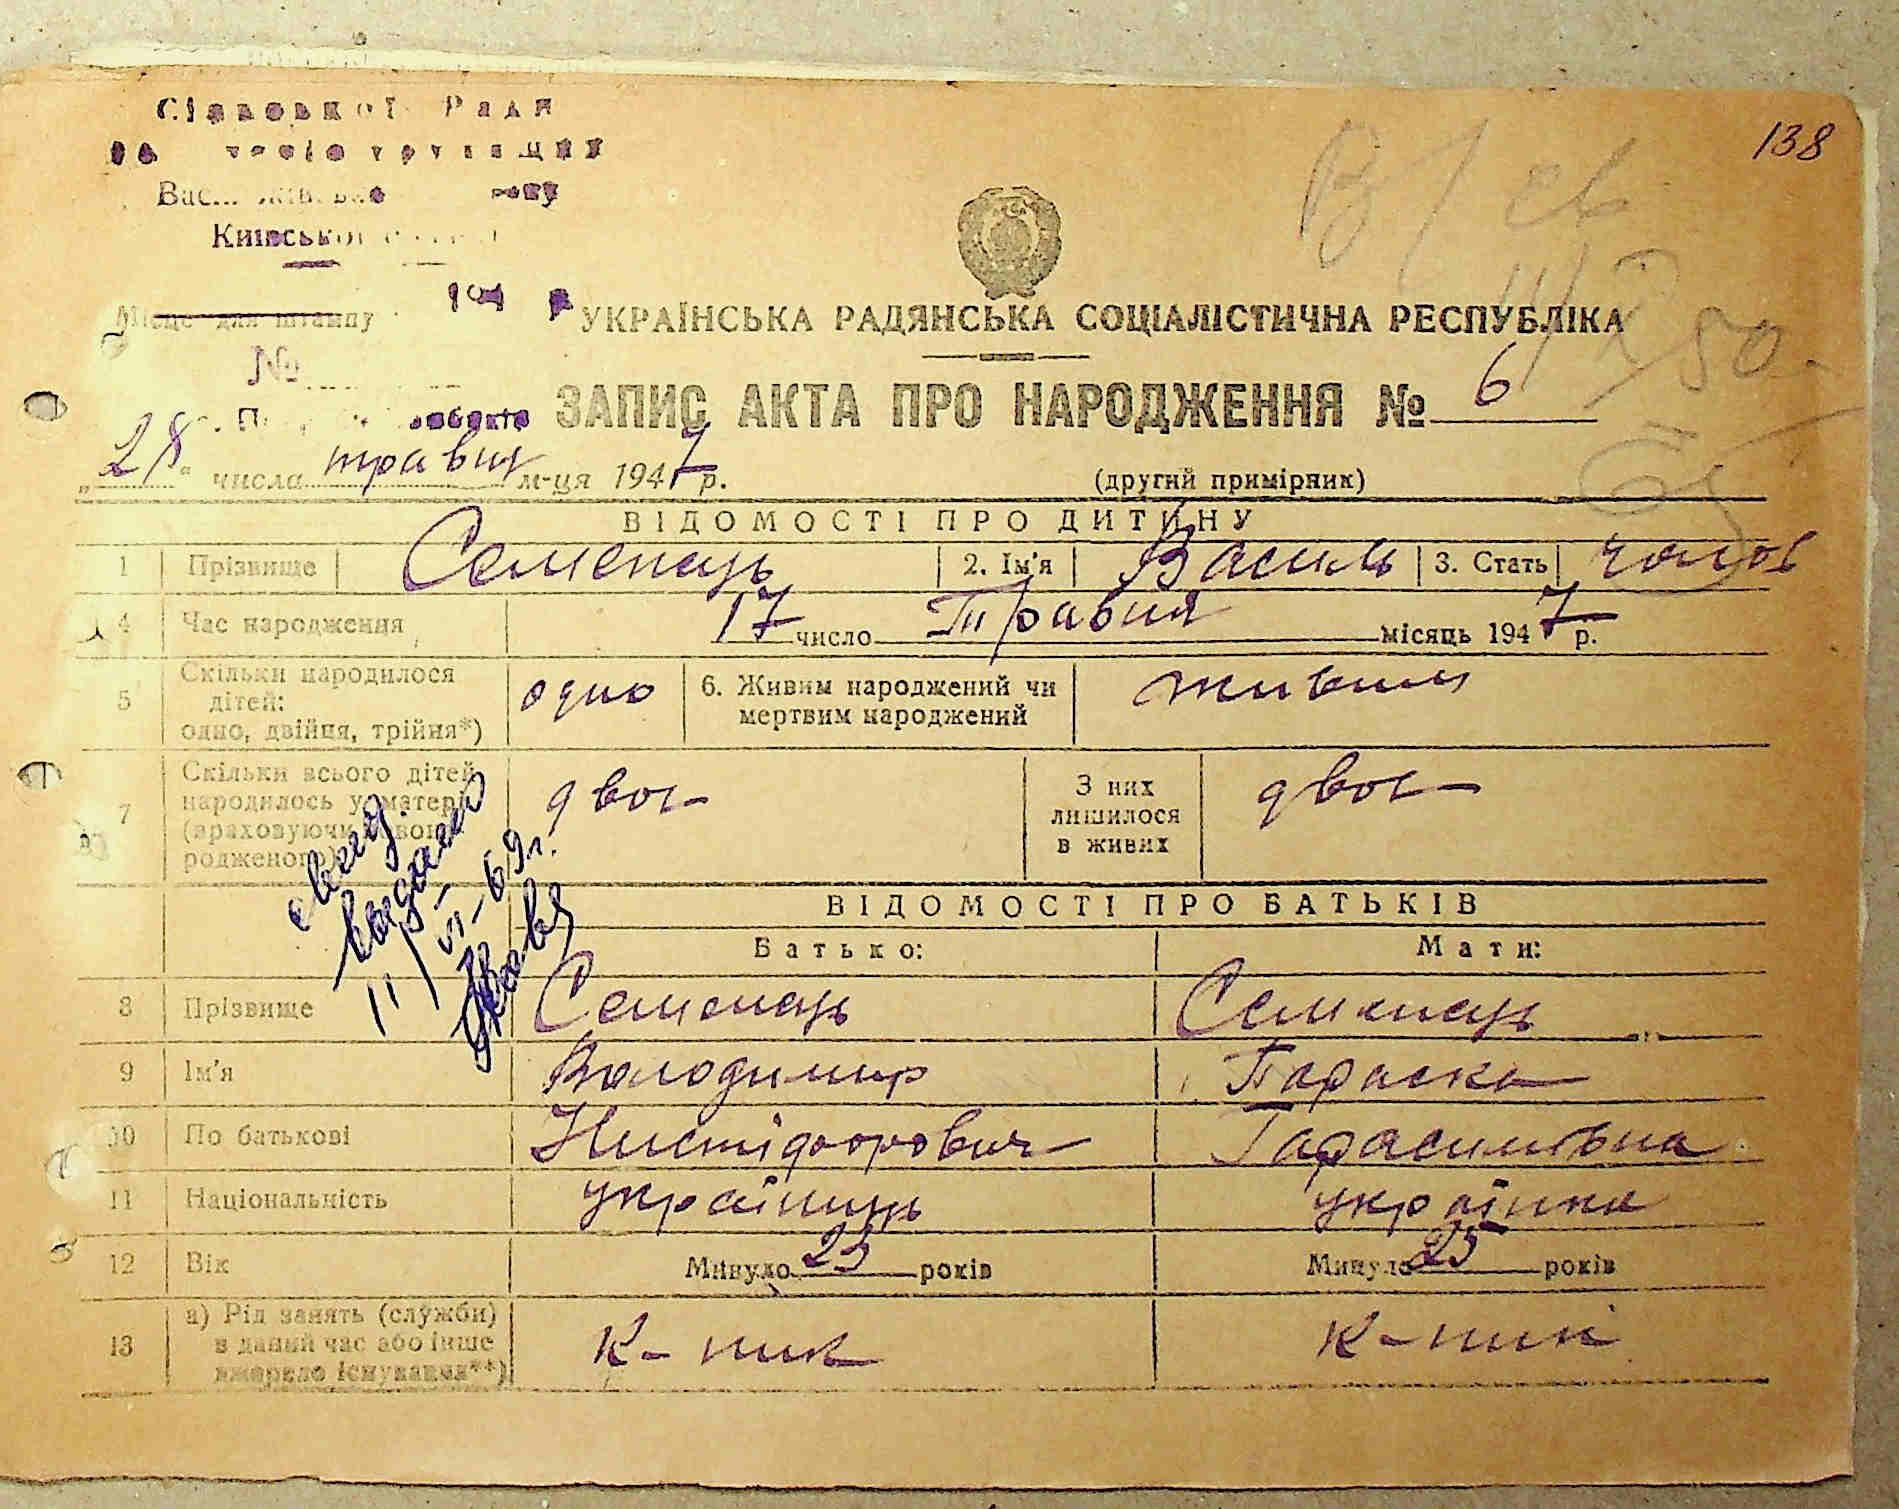 138
Ради
Київської
Місце для штампу
№
УКРАЇНСЬКА РАДЯНСЬКА СОЦІАЛІСТИЧНА РЕСПУБЛІКА
ЗАПИС АКТА ПРО НАРОДЖЕННЯ № 6
„28“ числа травня м-ця 1947 р.
(другий примірник)
ВІДОМОСТІ ПРО ДИТИНУ
1 Прізвище Семенець 2. Ім'я Василь 3. Стать чолов
4 Час народження 17 число Травня місяць 1947 р.
5 Скільки народилося дітей: одно, двійня, трійня*) одно 6. Живим народжений чи мертвим народжений живим
7 Скільки всього дітей народилось у матері (враховуючи новородженого) двоє З них лишилося в живих двоє
свид.
выдано
11/VI-69г.
ВІДОМОСТІ ПРО БАТЬКІВ
Батько: Мати:
8 Прізвище Семенець Семенець
9 Ім'я Володимир Параска
10 По батькові Нистідорович Гарасимівна
11 Національність українець українка
12 Вік Минуло 23 років Минуло 25 років
13 а) Рід занять (служби) в даний час або інше джерело існування**) К-ник К-ниц